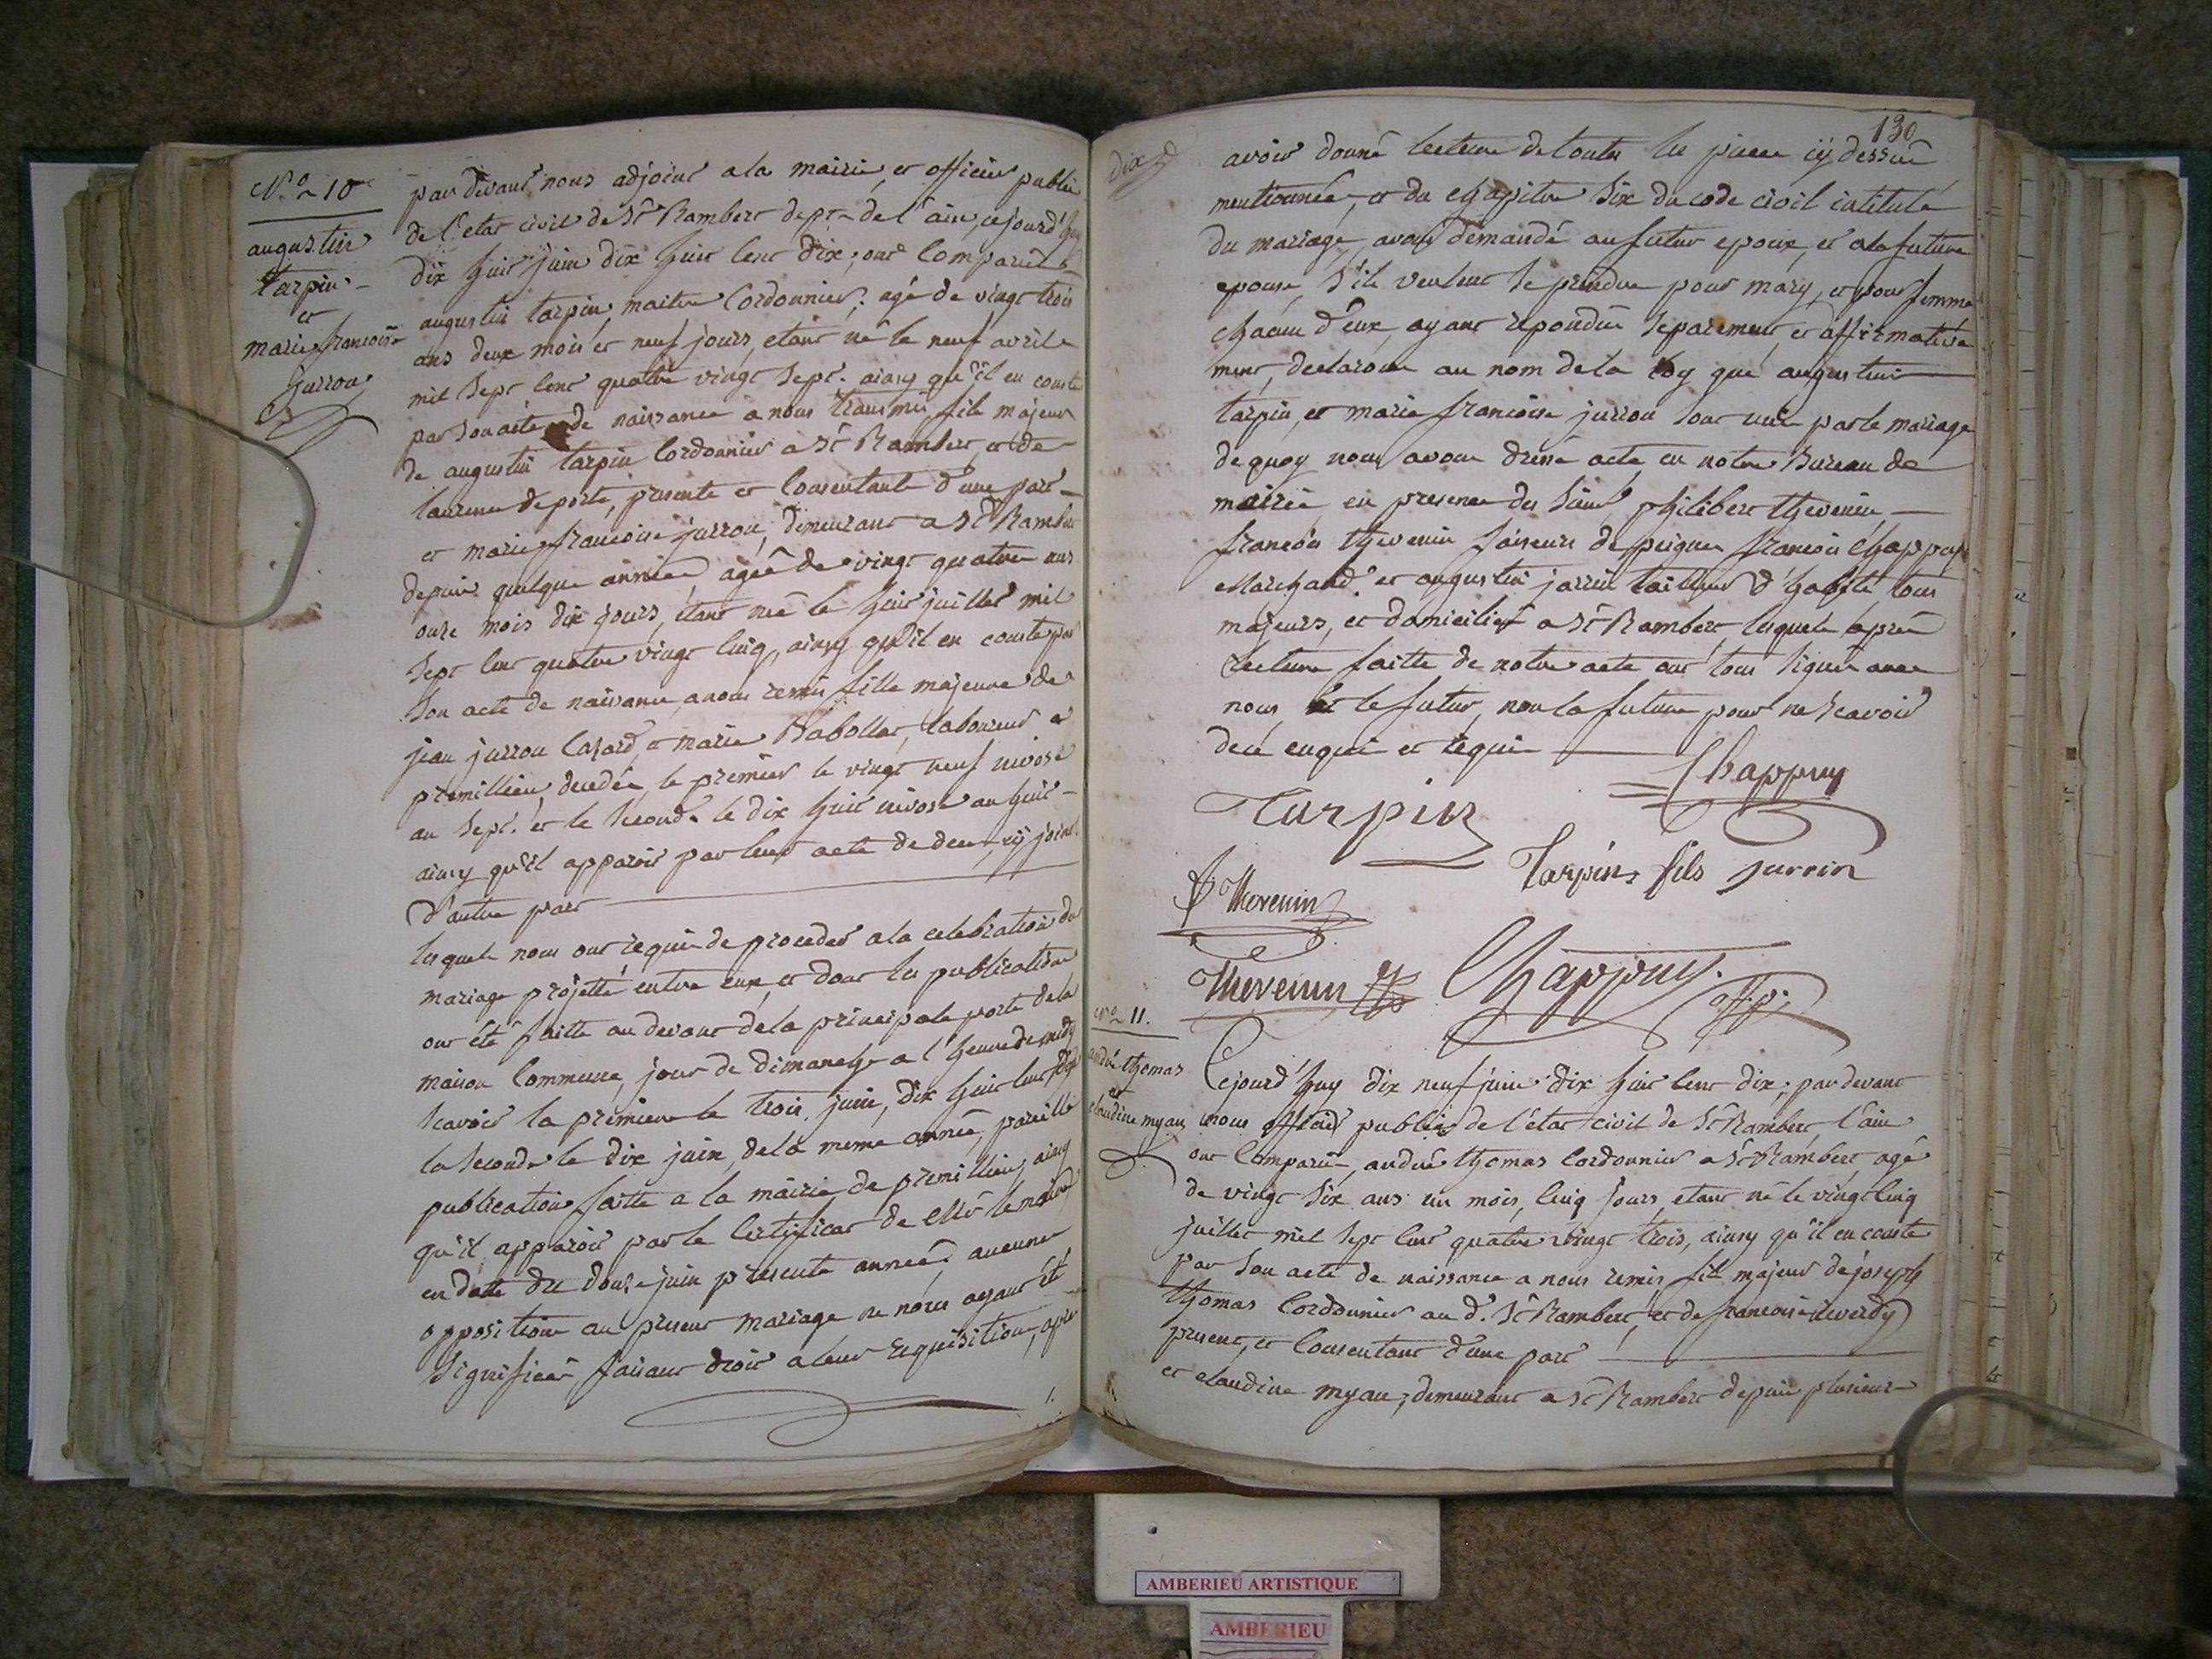 N.º 10
augustin
tarpin
et
marie francoise
jurrou
par devant nous adjoint a la mairie, et officier public
de l'etat civil de St Rambert dept de l'ain, cejourd'huy
dix huit juin dix huit cent dix; ont comparu
augustin tarpin, maitre Cordonnier, agé de vingt trois
ans deux mois et neuf jours, etant né le neuf avril
mil sept cent quatre vingt sept. ainsy qu'il en conste
par son acte de naissance a nous transmis, fils majeur
de augustin tarpin Cordonnier a St Rambert, et de
deporte, presente et Consentante d'une part
et marie francoise jurrou, demeurant a St Rambert
depuis quelque année agée de vingt quatre ans
onze mois dix jours, etant née le huit juillet mil
sept cent quatre vingt cinq, ainsy qu'il en conste par
son acte de naissance, a nous remis fille majeure de
jean jurrou et marie Rabollat, laboureur a
premillieu, decedés, le premier le vingt neuf nivose
an sept. et le second le dix huit nivose an huit
ainsy qu'il apparoit par leur acte de deces, cy joint
d'autre part
lesquels nous ont requis de proceder a la celebration du
mariage projetté entre eux, et dont les publications
ont été faitte au devant de la principale porte de la
maison Commune, jour de dimanche a l'heure de midy
scavoir la premiere le trois juin, dix huit cent dix
la seconde le dix juin, de la meme année, pareille
publication faitte a la mairie de premillieu, ainsy
qu'il apparoit par le Certificat de Mr le maire
en datte du douze juin presente année, aucune
opposition au present mariage ne nous ayant été
signifiée, faisant droit a leur requisition, apres
130
dix
avoir donné lecture de toutes les pieces cy dessus
mentionnée, et du chapitre six du code civil intitulé
du mariage, avons demandé au futur epoux, et a la future
epouse, s'ils veulent se prendre pour mary, et pour femme
chacun d'eux, ayant repondu separement, et affirmative
ment, declarons au nom de la loy que augustin
tarpin, et marie francoise jurrou sont unis par le mariage
de quoy nous avons dressé acte, en notre Bureau de
mairie en presence des Sieurs philibert thevenin
francois thevenin faiseurs de peignes francois Chappuy
Marchand. et augustin jarrin tailleur d'habits, tous
majeurs, et domiciliés a St Rambert, lesquels apres
lecture faitte de notre acte ont tous signés avec
nous, et le futur, non la future pour ne scavoir
de ce enquis et requis
Chappuy
Tarpin
Tarpin fils jarrin
f Thevenin
Thevenin Chappuy.
N.º 11.
andré thomas
et
claudine myan
Cejourd'huy dix neuf juin dix huit cent dix; par devant
nous officier public de l'etat civil de St Rambert l'ain
ont Comparu, andré thomas Cordonnier a St Rambert, agé
de vingt six ans un mois, cinq jours, etant né le vingt cinq
juillet mil sept cent quatre vingt trois, ainsy qu'il en conste
par son acte de naissance a nous remis fils majeur de joseph
thomas Cordonnier au d. St Rambert, et de francoise
present, et Consentant d'une part
et claudine myan; demeurant a St Rambert depuis plusieurs
AMBERIEU ARTISTIQUE
AMBERIEU